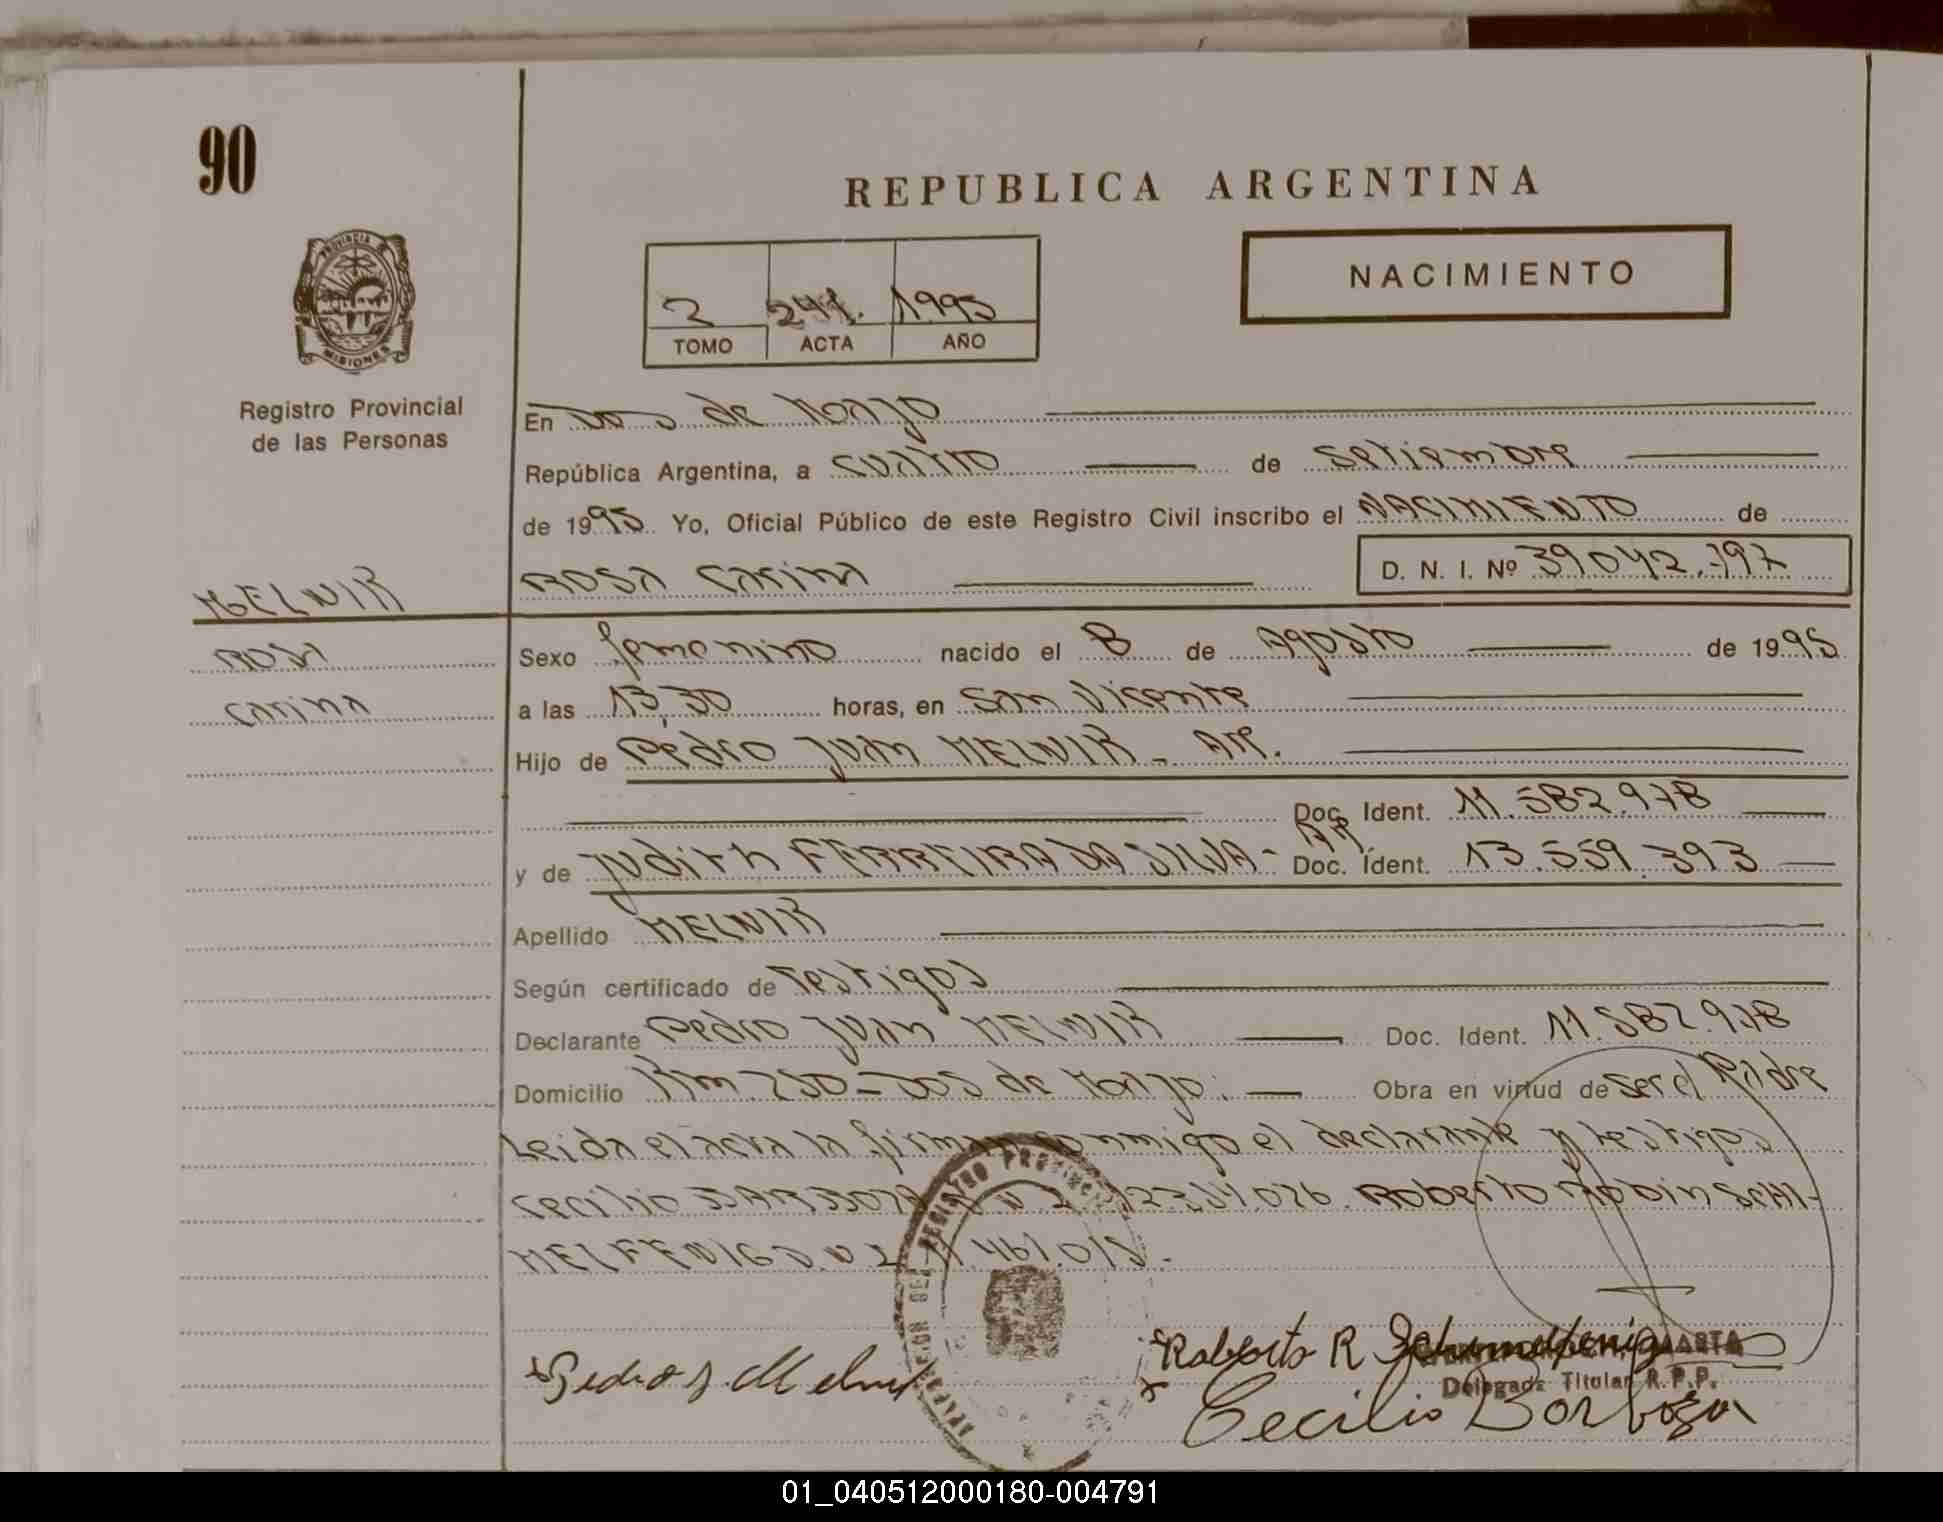 90
REPUBLICA ARGENTINA
NACIMIENTO
2 241. 1995
TOMO ACTA AÑO
PROVINCIA DE
MISIONES
Registro Provincial
de las Personas
En Dos de Mayo
República Argentina, a cuatro de setiembre
de 1995 Yo, Oficial Público de este Registro Civil inscribo el NACIMIENTO de
MELNIK
ROSA Carina D. N. I. Nº 39042.797
ROSA
Carina
Sexo femenino nacido el 8 de Agosto de 1995
a las 13,30 horas, en San Vicente
Hijo de Pedro Juan MELNIK - Arg.
Doc. Ident. 11.582.978
y de Judith FERREIRA DA SILVA - Doc. Ident. 13.559.393
Apellido MELNIK
Según certificado de Testigos
Declarante Pedro Juan MELNIK Doc. Ident. 11.582.978
Domicilio Km 250 - Dos de Mayo. Obra en virtud de ser el Padre
Leida el acta la firman conmigo el declarante y testigos
Cecilio BARBOZA Roberto
Pedro J. Melnik
Roberto R
Delegada Titular R.P.P.
Cecilio Borboza
01_040512000180-004791